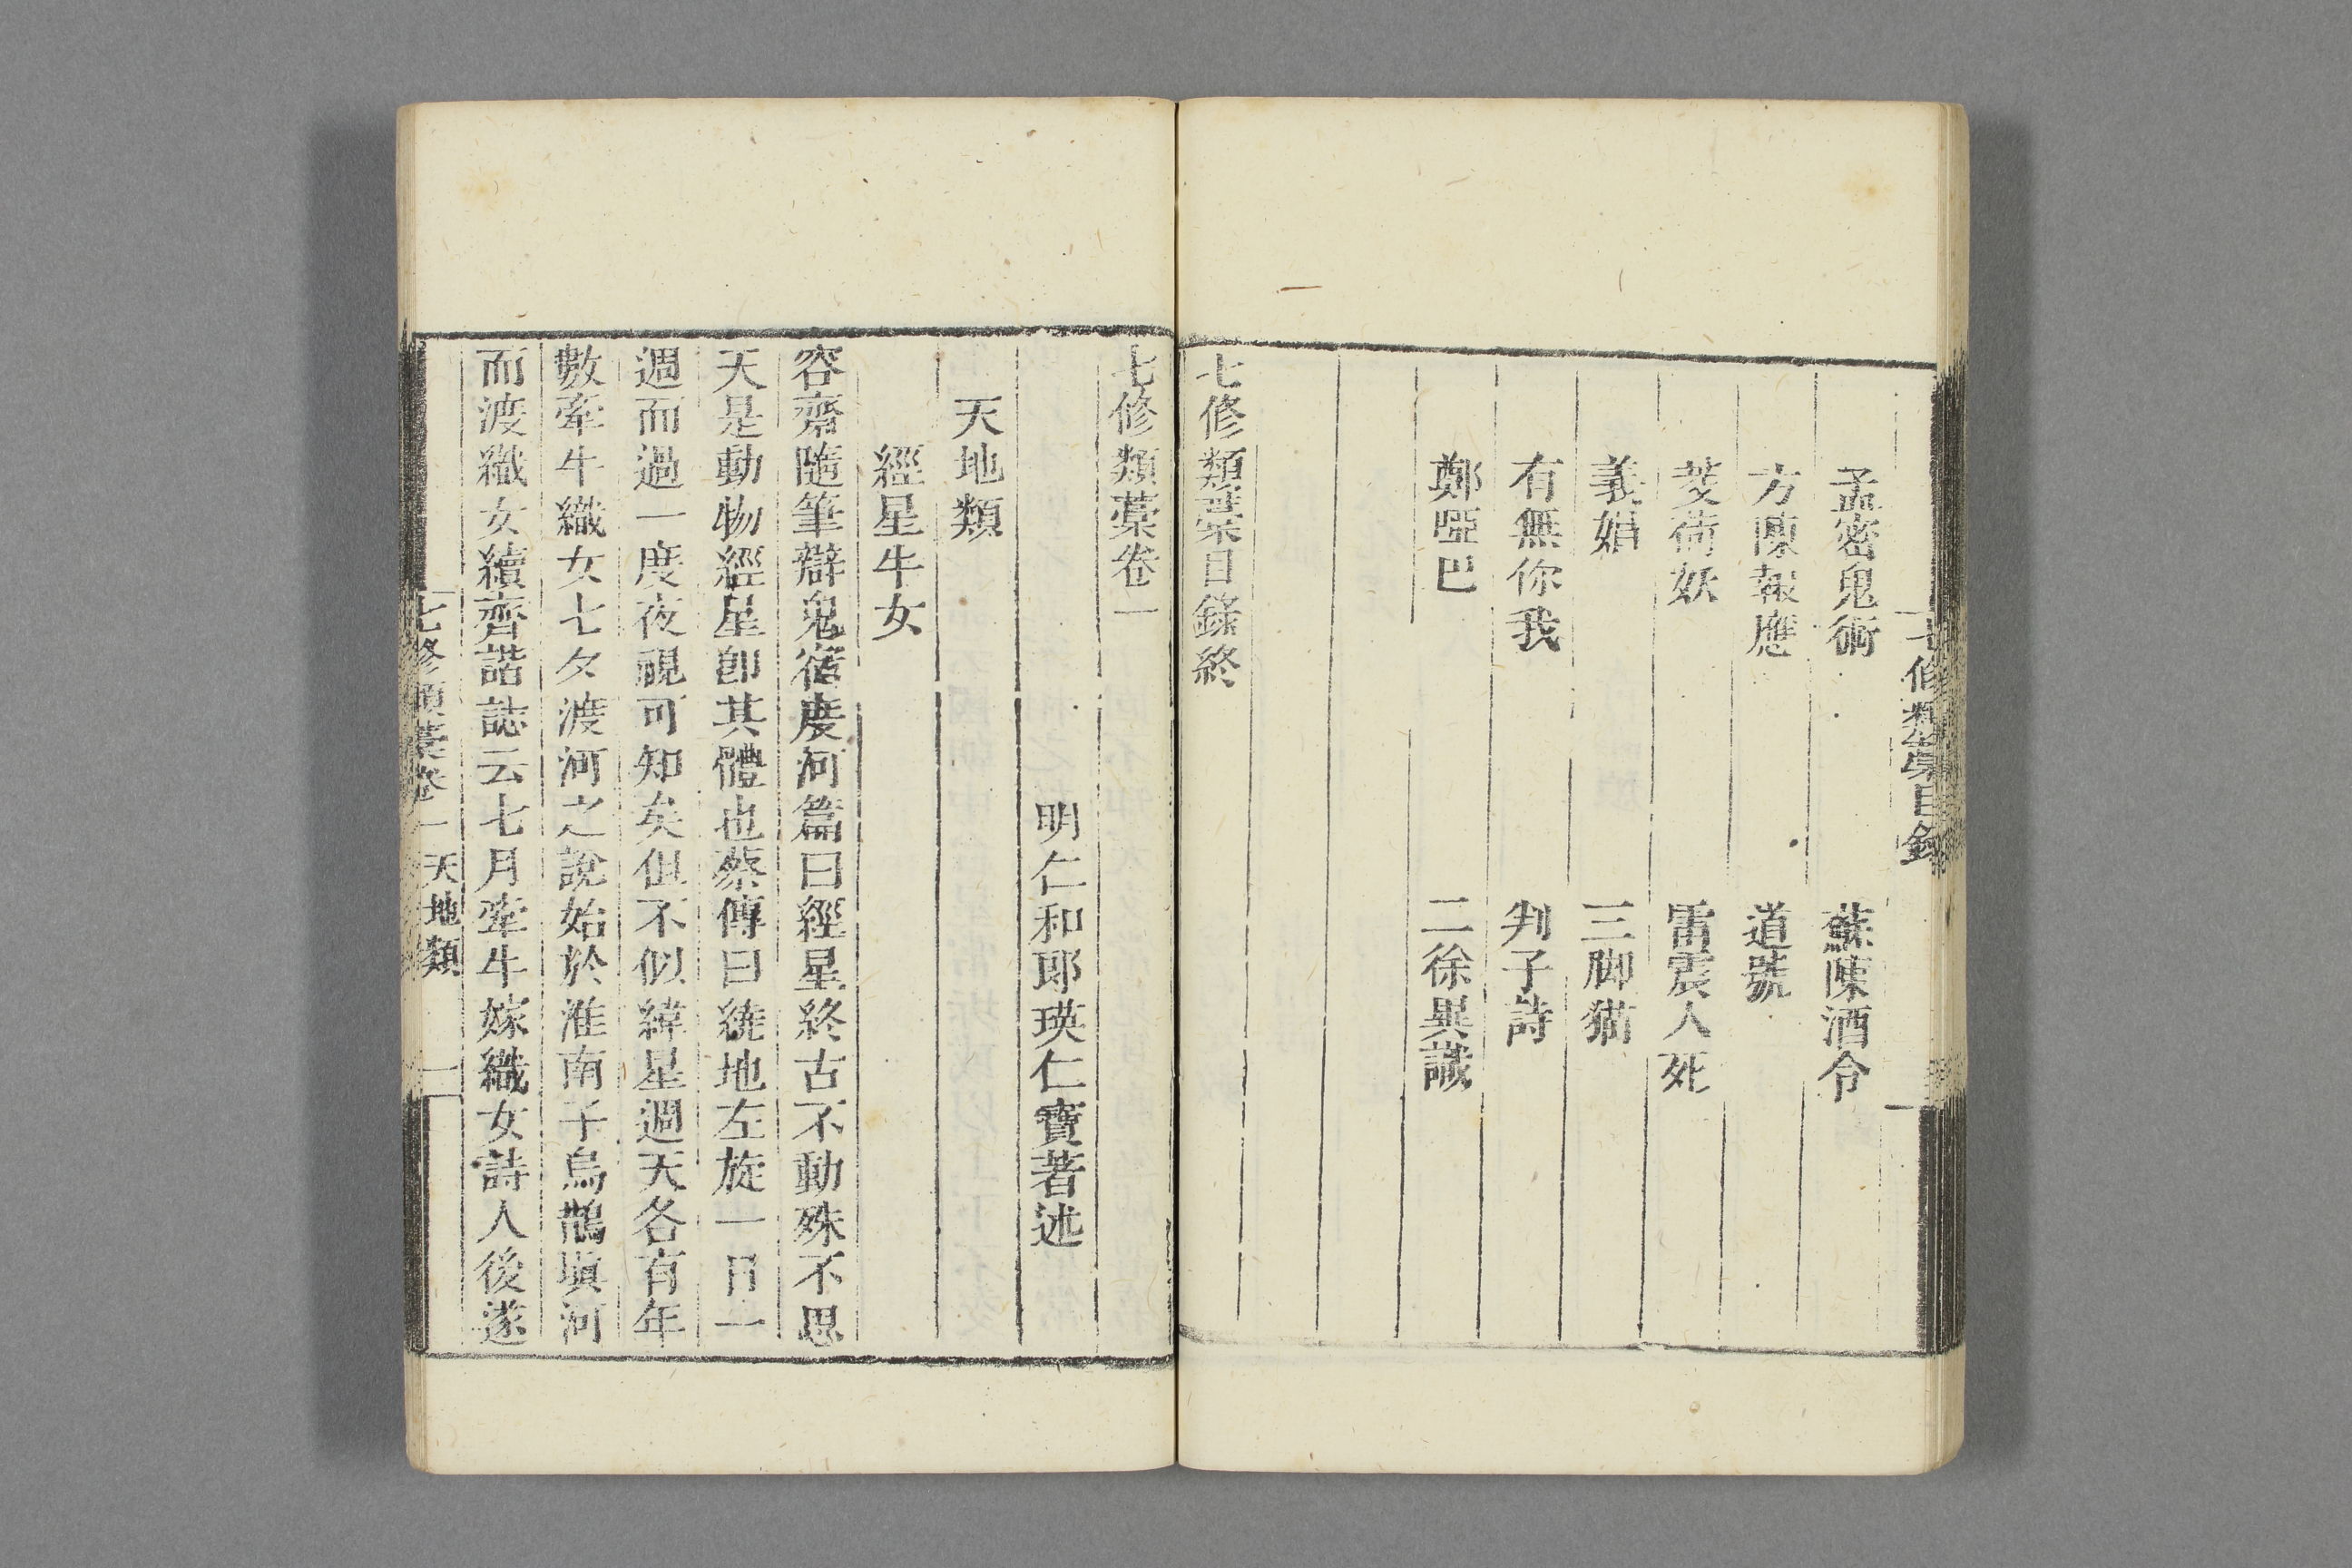 七修類藁目錄
孟密鬼術
蘇陳酒令
方陳報應
道號
芰荷妖
雷震人死
義娼
三脚猫
有無你我
判子詩
鄭啞巴
二徐異讖
七修類藁目錄終
七修類藁卷一
明仁和郎瑛仁寶著述
天地類
經星牛女
容齋隨筆辯鬼宿度河篇曰經星終古不動殊不思
天是動物經星卽其體也蔡傳曰繞地左旋一日一
週而過一度夜視可知矣但不似緯星週天各有年
數牽牛織女七夕渡河之說始於淮南子烏鵲塡河
而渡織女續齊諧誌云七月牽牛嫁織女詩人後遂
七修類藁卷一 天地類 一